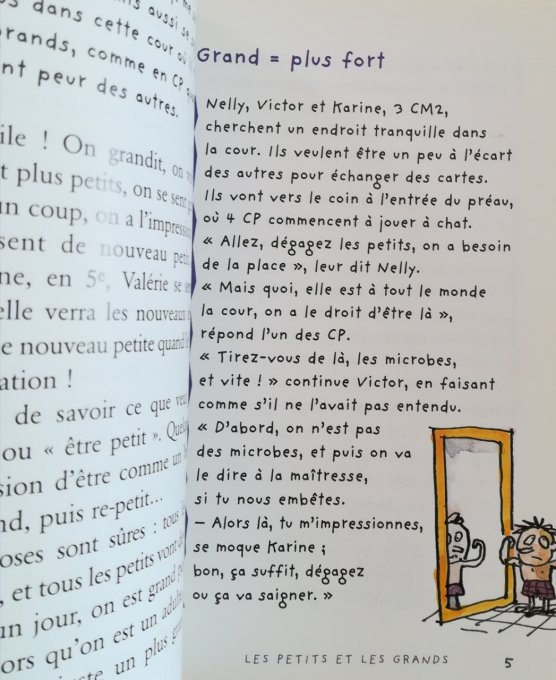 ns aussi se
s dans cette cour où
rands, comme en CP
nt peur des autres.
ile ! On grandit, on
t plus petits, on se sent
un coup, on a l'impression
sent de nouveau petit
ne, en 5e, Valérie se
elle verra les nouveaux
e nouveau petite quand
ation !
de savoir ce que
ou « être petit ».
sion d'être comme un
nd, puis re-petit...
oses sont sûres : tous
, et tous les petits vont
n jour, on est grand
ors qu'on est un adulte
un plus
Grand = plus fort
Nelly, Victor et Karine, 3 CM2,
cherchent un endroit tranquille dans
la cour. Ils veulent être un peu à l'écart
des autres pour échanger des cartes.
Ils vont vers le coin à l'entrée du préau,
où 4 CP commencent à jouer à chat.
« Allez, dégagez les petits, on a besoin
de la place », leur dit Nelly.
« Mais quoi, elle est à tout le monde
la cour, on a le droit d'être là »,
répond l'un des CP.
« Tirez-vous de là, les microbes,
et vite ! » continue Victor, en faisant
comme s'il ne l'avait pas entendu.
« D'abord, on n'est pas
des microbes, et puis on va
le dire à la maîtresse,
si tu nous embêtes.
– Alors là, tu m'impressionnes,
se moque Karine ;
bon, ça suffit, dégagez
ou ça va saigner. »
LES PETITS ET LES GRANDS 5